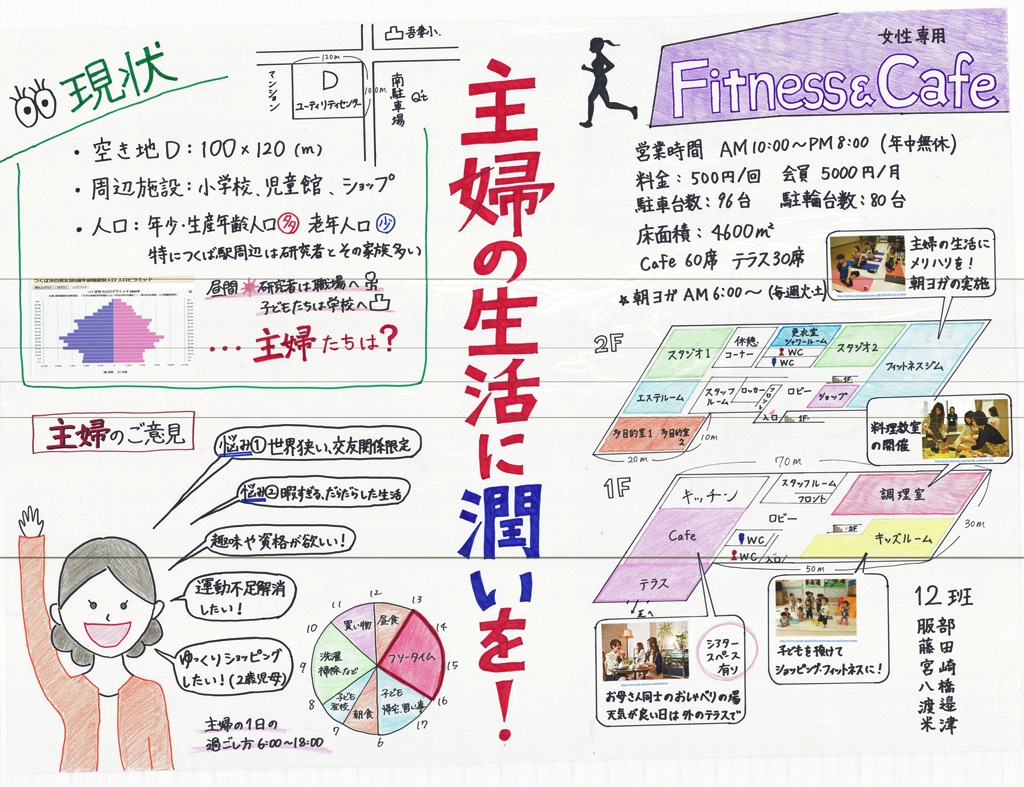 現状
吾妻小.
120m
マンション
D
ユーティリティセンター
100m
南駐車場
Q't
・空き地D：100×120 (m)
・周辺施設：小学校、児童館、ショップ
・人口：年少・生産年齢人口 多 老年人口 少
特につくば駅周辺は研究者とその家族多い
昼間 研究者は職場へ
子どもたちは学校へ
・・・主婦たちは？
主婦のご意見
悩み① 世界狭い、交友関係限定
悩み② 暇すぎる、だらだらした生活
趣味や資格が欲しい！
運動不足解消
したい！
ゆっくりショッピング
したい！(2歳児母)
主婦の1日の
過ごし方 6:00〜18:00
12
13
14
15
16
17
6
7
8
9
10
11
昼食
フリータイム
子ども
帰宅、買い事
朝食
子ども
登校
洗濯
掃除など
買い物
主婦の生活に潤いを！
女性専用
Fitness&Cafe
営業時間 AM10:00〜PM8:00 (年中無休)
料金：500円/回 会員 5000円/月
駐車台数：96台 駐輪台数：80台
床面積：4600m²
Cafe 60席 テラス30席
★朝ヨガ AM6:00〜 (毎週火・土)
主婦の生活に
メリハリを！
朝ヨガの実施
2F
スタジオ1
休憩
コーナー
更衣室
シャワールーム
WC
WC
スタジオ2
フィットネスジム
エステルーム
スタッフ
ルーム
ロッカー
フロント
ロビー
ショップ
1F
入口
1F
多目的室1
多目的室2
10m
20m
料理教室
の開催
1F
70m
キッチン
スタッフルーム
フロント
調理室
ロビー
Cafe
WC
WC
入口
2F
キッズルーム
30m
50m
テラス
シアター
スペース
有り
お母さん同士のおしゃべりの場
天気が良い日は外のテラスで
子どもを預けて
ショッピング・フィットネスに！
12班
服部
藤田
宮崎
八橋
渡邉
米津